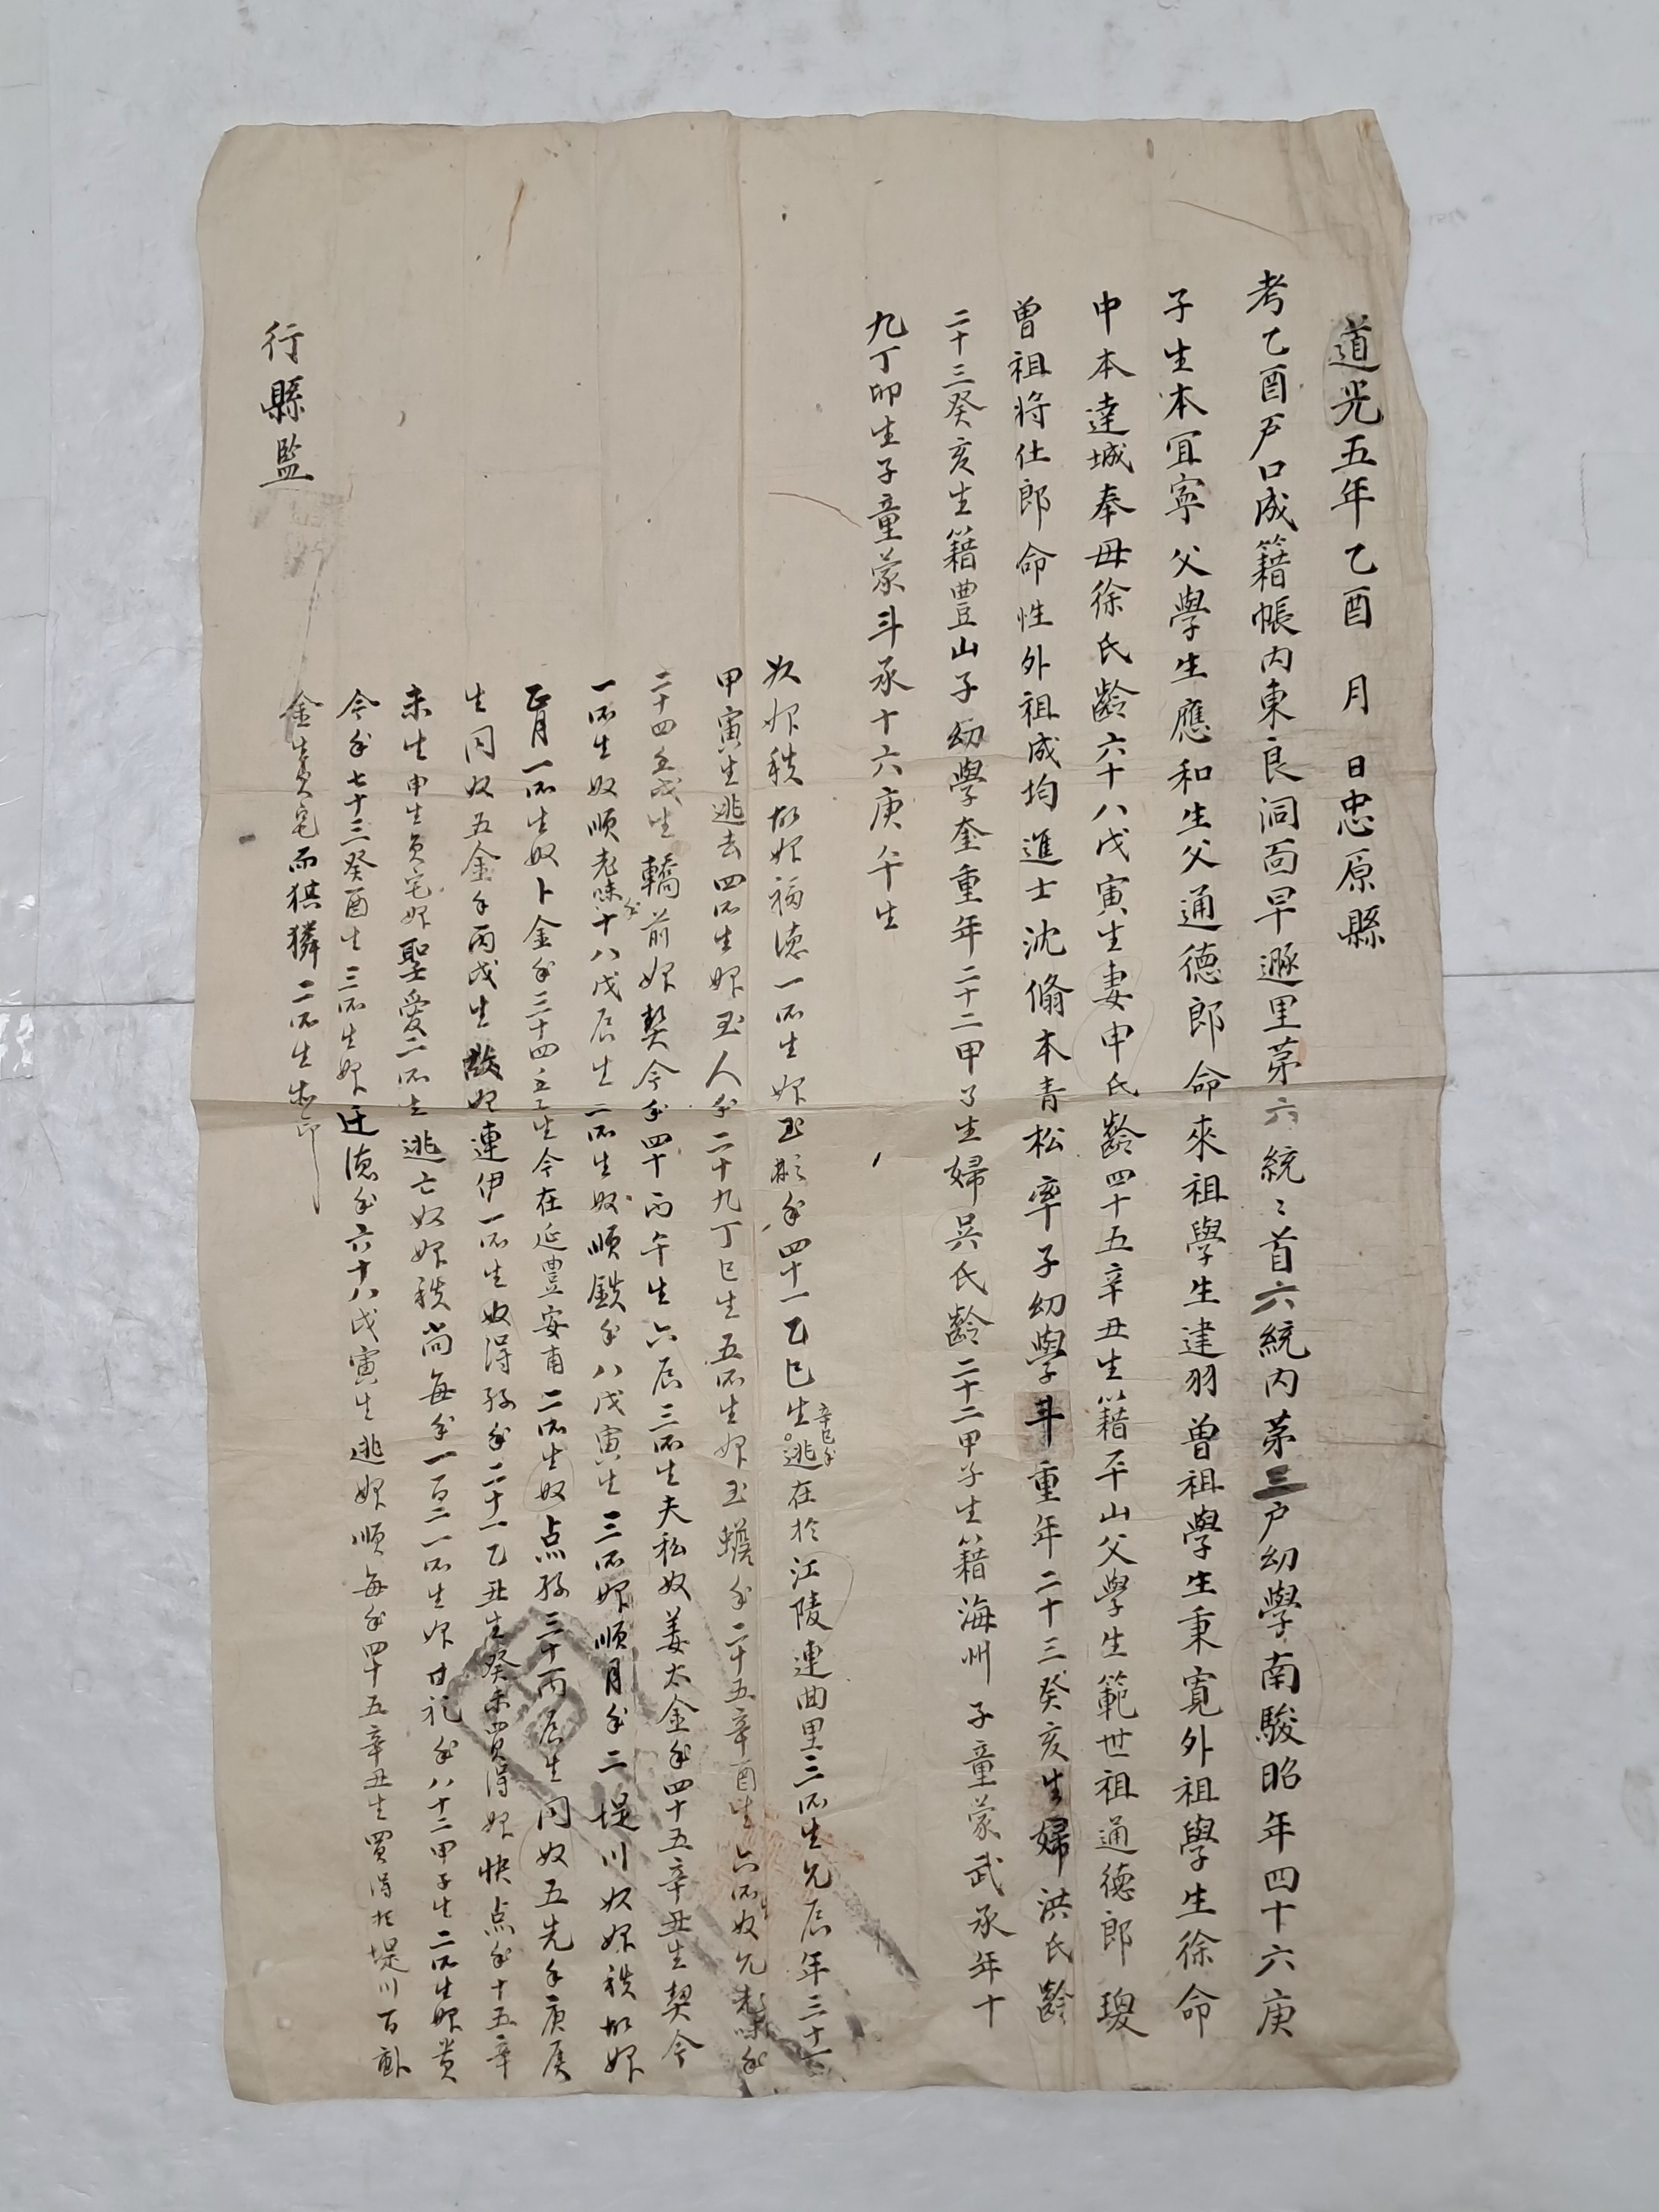 道光五年乙酉 月 日忠原縣
考乙酉戶口成籍帳内東良洞面早遯里茅六統ミ首六統内茅三戶幼學南駿昭年四十六庚
子生本冝寧父學生應和生父通德郎命來祖學生建羽曾祖學生秉寬外祖學生徐命
申本達城奉母徐氏齡六十八戊寅生妻申氏齡四十五辛丑生籍平山父學生範世祖通德郎㻛
曾祖將仕郎命性外祖成均進士沈脩本青松率子幼學斗重年二十三癸亥生婦洪氏齡
二十三癸亥生籍豊山子幼學奎重年二十二甲子生婦吳氏齡二十二甲子生籍海州子童蒙武承年十
九丁卯生子童蒙斗承十六庚午生
奴婢秩故婢福德一所生婢玉 年四十一乙巳生辛巳年逃在於江陵連曲里三所生兄辰年三十二
甲寅生逃去四所生婢玉人年二十九丁巳生五所生婢玉蟾年二十五辛酉生六所生奴兄老味年
二十四壬戌生轎前婢契今年四十丙午生六辰三所生夫私奴姜太金年四十五辛丑生契今
一所生奴順老味年十八戊辰生二所生奴順鉄年八戊寅生三所婢順月年二堤川奴婢秩故婢
正月一所生奴卜金年三十四壬子生今在延豊安甫二所生奴点孫三十丙辰生同奴五先年庚辰
生同奴五金年丙戌生故婢連伊一所生奴得孫年二十一乙丑生癸未買得婢快点年十五辛
未生申生員宅婢聖愛二所生逃亡奴婢秩尚每年一百二一所生婢甘礼年八十二甲子生二所生婢貴
今年七十三癸酉生三所生婢廷德年六十八戊寅生逃婢順每年四十五辛丑生買得於堤川百
金生員宅而猉獜二所生
行縣監